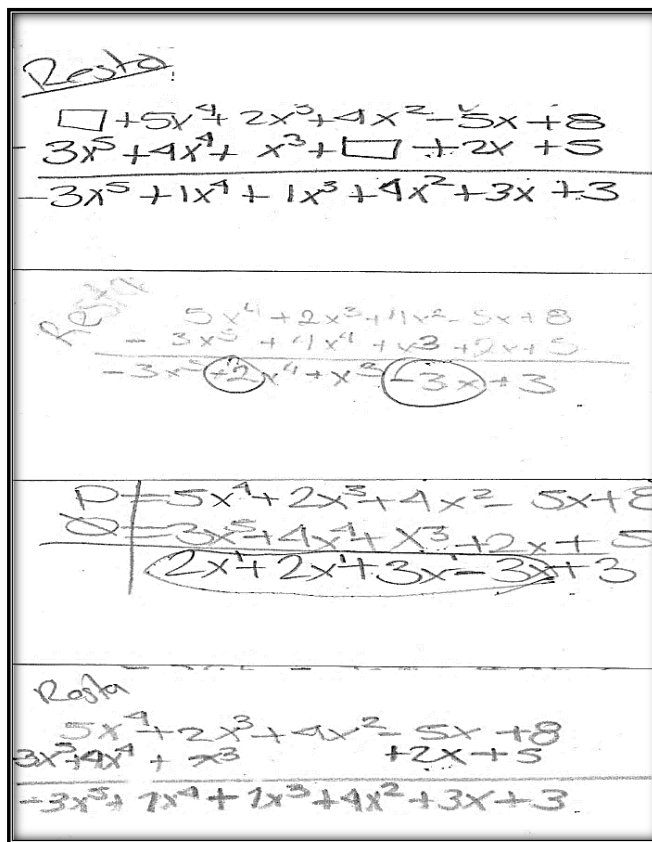 Resta:
□+5x⁴+ 2x³+4x²-5x+8
- 3x⁵+4x⁴+ x³+□+2x +5
-3x⁵+1x⁴+ 1x³+4x²+3x+3
Resta
5x⁴+2x³+4x²-5x+8
- 3x⁵ +4x⁴ +x3 +2x+5
-3x⁵+2x⁴+x³-3x+3
P=5x⁴+2x³+4x²- 5x+8
Q=3x⁵+4x⁴+X³+2x+5
2x⁴+2x⁴+3x-3x+3
Resta
5x⁴+2x³+4x²-5x+8
3x⁵+4x⁴+ x³ +2x+5
-3x⁵+1x⁴+1x³+4x²+3x+3